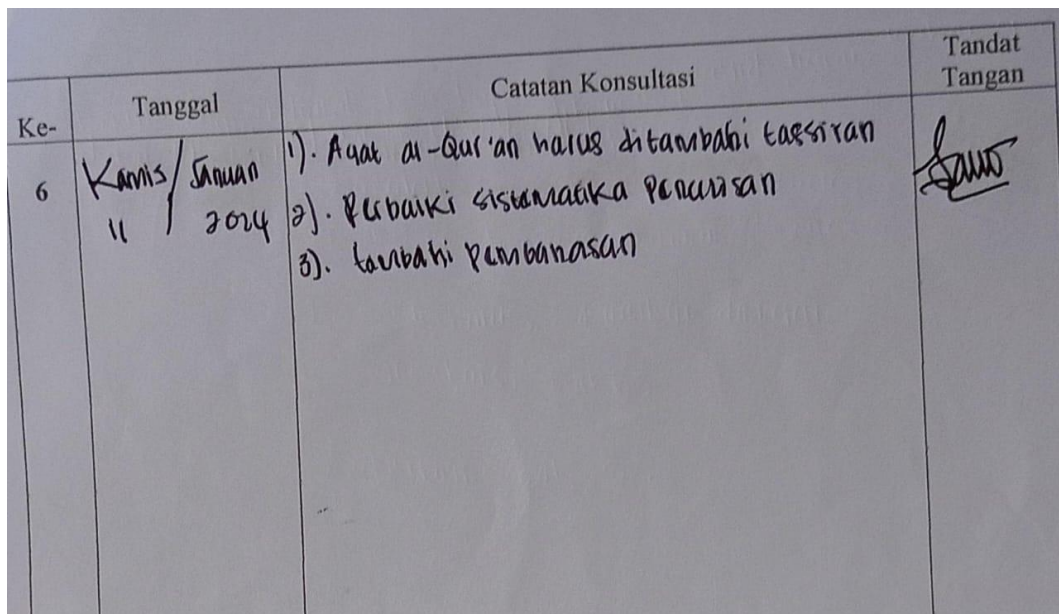 Ke- Tanggal Catatan Konsultasi Tandat Tangan
6 Kamis / Januari 1). Ayat al-Qur'an harus ditambahi tafsiran
11 / 2024 2). Perbaiki sistematika Penulisan
3). tambahi pembahasan